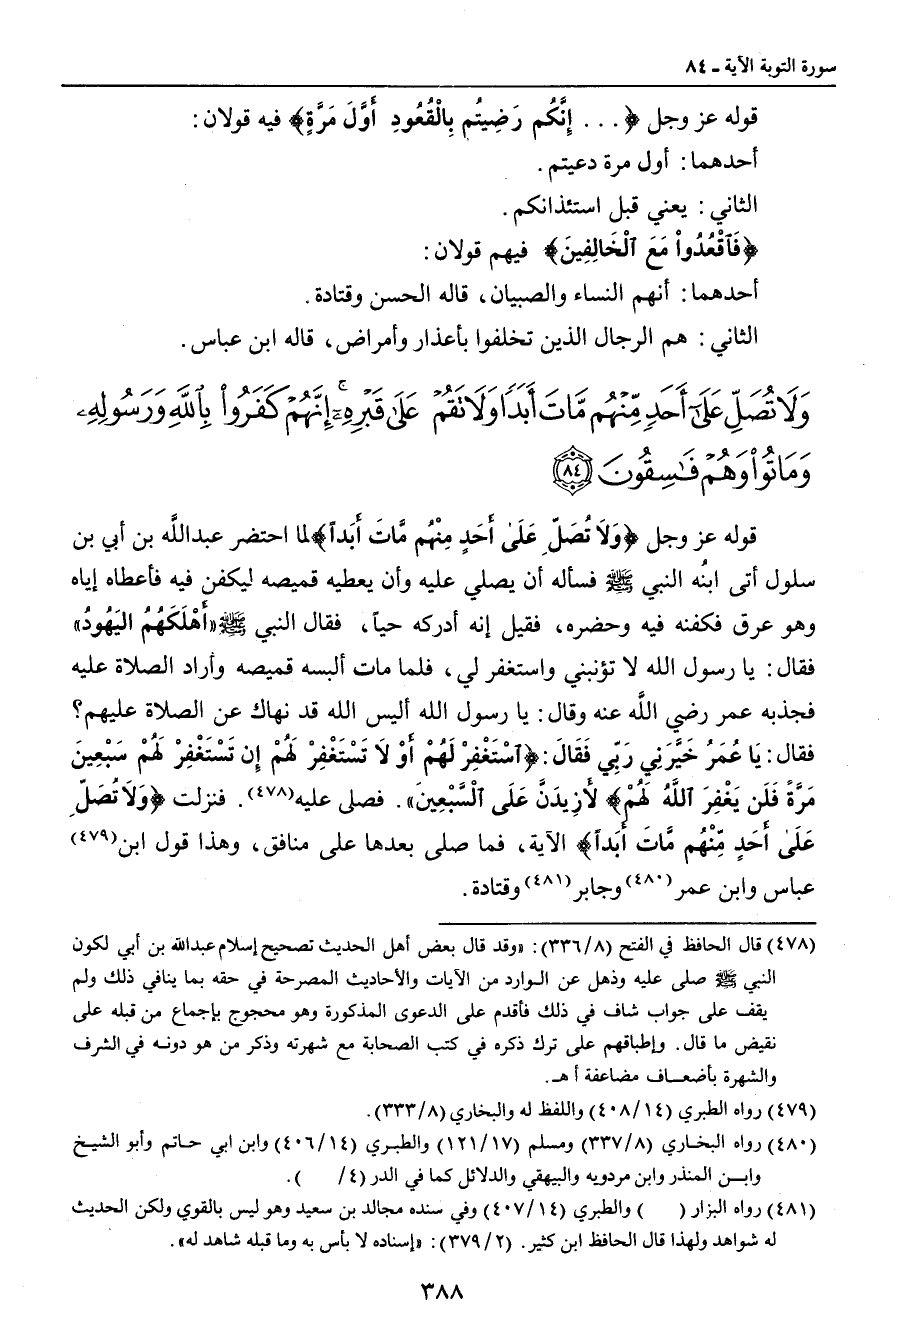 سورة التوبة الآية ـ ٨٤
قوله عز وجل ﴿. . . إِنَّكُم رَضِيتُم بِالْقُعُودِ أَوَّلَ مَرَّةٍ﴾ فيه قولان:
أحدهما: أول مرة دعيتم.
الثاني: يعني قبل استئذانكم.
﴿فَٱقْعُدُواْ مَعَ ٱلْخَالِفِينَ﴾ فيهم قولان:
أحدهما: أنهم النساء والصبيان، قاله الحسن وقتادة.
الثاني: هم الرجال الذين تخلفوا بأعذار وأمراض، قاله ابن عباس.
وَلَا تُصَلِّ عَلَىٰٓ أَحَدٍ مِّنْهُم مَّاتَ أَبَدًا وَلَا تَقُمْ عَلَىٰ قَبْرِهِۦٓ ۚ إِنَّهُمْ كَفَرُواْ بِٱللَّهِ وَرَسُولِهِۦ
وَمَاتُواْ وَهُمْ فَٰسِقُونَ ٨٤
قوله عز وجل ﴿وَلاَ تُصَلِّ عَلَىٰ أَحَدٍ مِنْهُم مَّاتَ أَبَداً﴾ لما احتضر عبدالله بن أبي بن
سلول أتى ابنُه النبي ﷺ فسأله أن يصلي عليه وأن يعطيه قميصه ليكفن فيه فأعطاه إياه
وهو عرق فكفنه فيه وحضره، فقيل إنه أدركه حياً، فقال النبي ﷺ «أَهْلَكَهُمُ اليَهُودُ»
فقال: يا رسول الله لا تؤنبني واستغفر لي، فلما مات ألبسه قميصه وأراد الصلاة عليه
فجذبه عمر رضي اللَّه عنه وقال: يا رسول الله أليس الله قد نهاك عن الصلاة عليهم؟
فقال: يَا عُمَرُ خَيَّرَنِي رَبِّي فَقَالَ: ﴿ٱسْتَغْفِرْ لَهُمْ أَوْ لَا تَسْتَغْفِرْ لَهُمْ إِن تَسْتَغْفِرْ لَهُمْ سَبْعِينَ
مَرَّةً فَلَن يَغْفِرَ اللَّهُ لَهُمْ﴾ لأَزِيدَنَّ عَلَى ٱلسَّبْعِينَ». فصلى عليه(٤٧٨). فنزلت ﴿وَلاَ تُصَلِّ
عَلَىٰ أَحَدٍ مِّنْهُم مَّاتَ أَبَداً﴾ الآية، فما صلى بعدها على منافق، وهذا قول ابن(٤٧٩)
عباس وابن عمر(٤٨٠) وجابر(٤٨١) وقتادة.
(٤٧٨) قال الحافظ في الفتح (٣٣٦/٨): «وقد قال بعض أهل الحديث تصحيح إسلام عبدالله بن أبي لكون
النبي ﷺ صلى عليه وذهل عن الوارد من الآيات والأحاديث المصرحة في حقه بما ينافي ذلك ولم
يقف على جواب شاف في ذلك فأقدم على الدعوى المذكورة وهو محجوج بإجماع من قبله على
نقيض ما قال. وإطباقهم على ترك ذكره في كتب الصحابة مع شهرته وذكر من هو دونه في الشرف
والشهرة بأضعاف مضاعفة أ هـ.
(٤٧٩) رواه الطبري (٤٠٨/١٤) واللفظ له والبخاري (٣٣٣/٨).
(٤٨٠) رواه البخاري (٣٣٧/٨) ومسلم (١٢١/١٧) والطبري (٤٠٦/١٤) وابن ابي حاتم وأبو الشيخ
وابن المنذر وابن مردويه والبيهقي والدلائل كما في الدر (٤/    ).
(٤٨١) رواه البزار (    ) والطبري (٤٠٧/١٤) وفي سنده مجالد بن سعيد وهو ليس بالقوي ولكن الحديث
له شواهد ولهذا قال الحافظ ابن كثير. (٣٧٩/٢): «إسناده لا بأس به وما قبله شاهد له».
٣٨٨